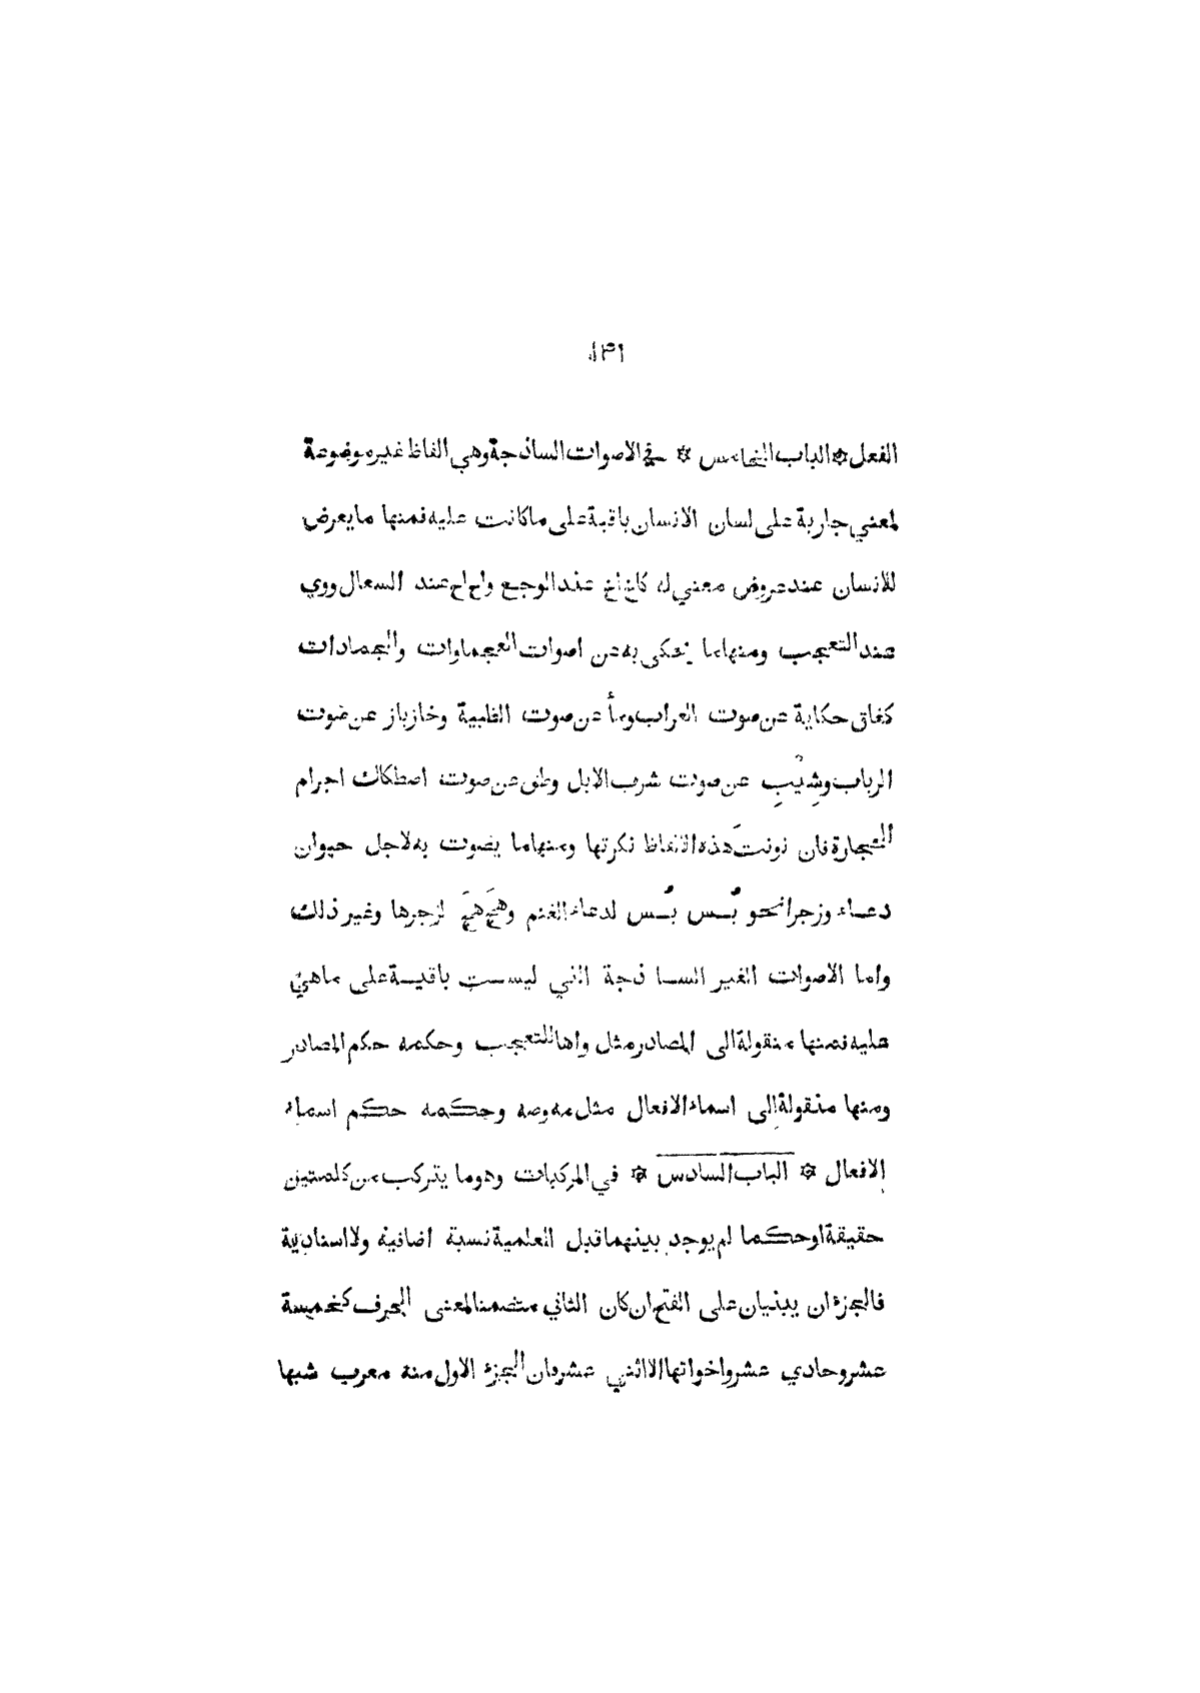 ١٣١
الفعل ۞ الباب الخامس ۞ في الاصوات الساذجة وهي الفاظ غير موضوعة
لمعني جارية على لسان الانسان باقية على ما كانت عليه فمنها ما يعرض
للانسان عند عروض معني له كاخ اخ عند الوجع واح اح عند السعال ووي
عند التعجب ومنها ما يحكى به عن اصوات العجماوات والجمادات
كغاق حكاية عن صوت الغراب وماً عن صوت الظبية وخازباز عن صوت
الرباب وشِيْبِ عن صوت شرب الابل وطق عن صوت اصطكاك اجرام
الحجارة فان نونتَ هذه الالفاظ نكرتها ومنها ما يصوت به لاجل حيوان
دعاء وزجرا نحو بُس بُس لدعاء الغنم وهَجَ هَجَ لزجرها وغير ذلك
واما الاصوات الغير الساذجة التي ليست باقية على ماهي
عليه فمنها منقولة الى المصادر مثل واها للتعجب وحكمه حكم المصادر
ومنها منقولة الى اسماء الافعال مثل مه وصه وحكمه حكم اسماء
الافعال ۞ الباب السادس ۞ في المركبات وهو ما يتركب من كلمتين
حقيقة او حكما لم يوجد بينهما قبل العلمية نسبة اضافية ولا اسنادية
فالجزءان يبنيان على الفتح ان كان الثاني متضمنا لمعنى الحرف كخمسة
عشر وحادي عشر واخواتها الا اثني عشر فان الجزء الاول منه معرب شبها